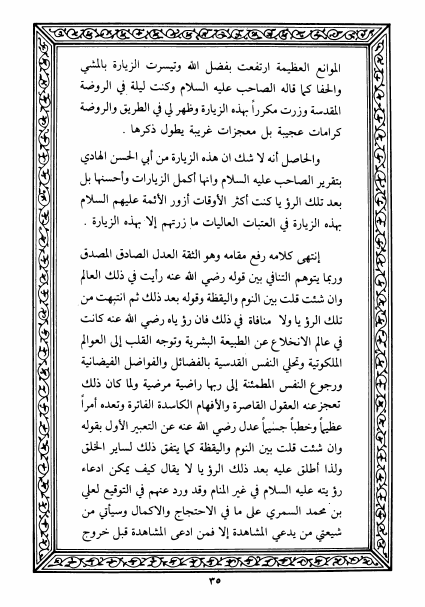 الموانع العظيمة ارتفعت بفضل الله وتيسرت الزيارة بالمشي
والحفا كما قاله الصاحب عليه السلام وكنت ليلة في الروضة
المقدسة وزرت مكرراً بهذه الزيارة وظهر لي في الطريق والروضة
كرامات عجيبة بل معجزات غريبة يطول ذكرها .
والحاصل أنه لا شك ان هذه الزيارة من أبي الحسن الهادي
بتقرير الصاحب عليه السلام وانها أكمل الزيارات وأحسنها بل
بعد تلك الرؤيا كنت أكثر الأوقات أزور الأئمة عليهم السلام
بهذه الزيارة في العتبات العاليات ما زرتهم إلا بهذه الزيارة .
إنتهى كلامه رفع مقامه وهو الثقة العدل الصادق المصدق
وربما يتوهم التنافي بين قوله رضي الله عنه رأيت في ذلك العالم
وان شئت قلت بين النوم واليقظة وقوله بعد ذلك ثم انتبهت من
تلك الرؤيا ولا منافاة في ذلك فان رؤياه رضي الله عنه كانت
في عالم الانخلاع عن الطبيعة البشرية وتوجه القلب إلى العوالم
الملكوتية وتحلي النفس القدسية بالفضائل والفواضل الفيضانية
ورجوع النفس المطمئنة إلى ربها راضية مرضية ولما كان ذلك
تعجز عنه العقول القاصرة والأفهام الكاسدة الفاترة وتعده أمراً
عظيماً وخطباً جسيماً عدل رضي الله عنه عن التعبير الأول بقوله
وان شئت قلت بين النوم واليقظة كما يتفق ذلك لساير الخلق
ولذا أطلق عليه بعد ذلك الرؤيا لا يقال كيف يمكن ادعاء
رؤيته عليه السلام في غير المنام وقد ورد عنهم في التوقيع لعلي
بن محمد السمري على ما في الاحتجاج والاكمال وسيأتي من
شيعتي من يدعي المشاهدة إلا فمن ادعى المشاهدة قبل خروج
٣٥